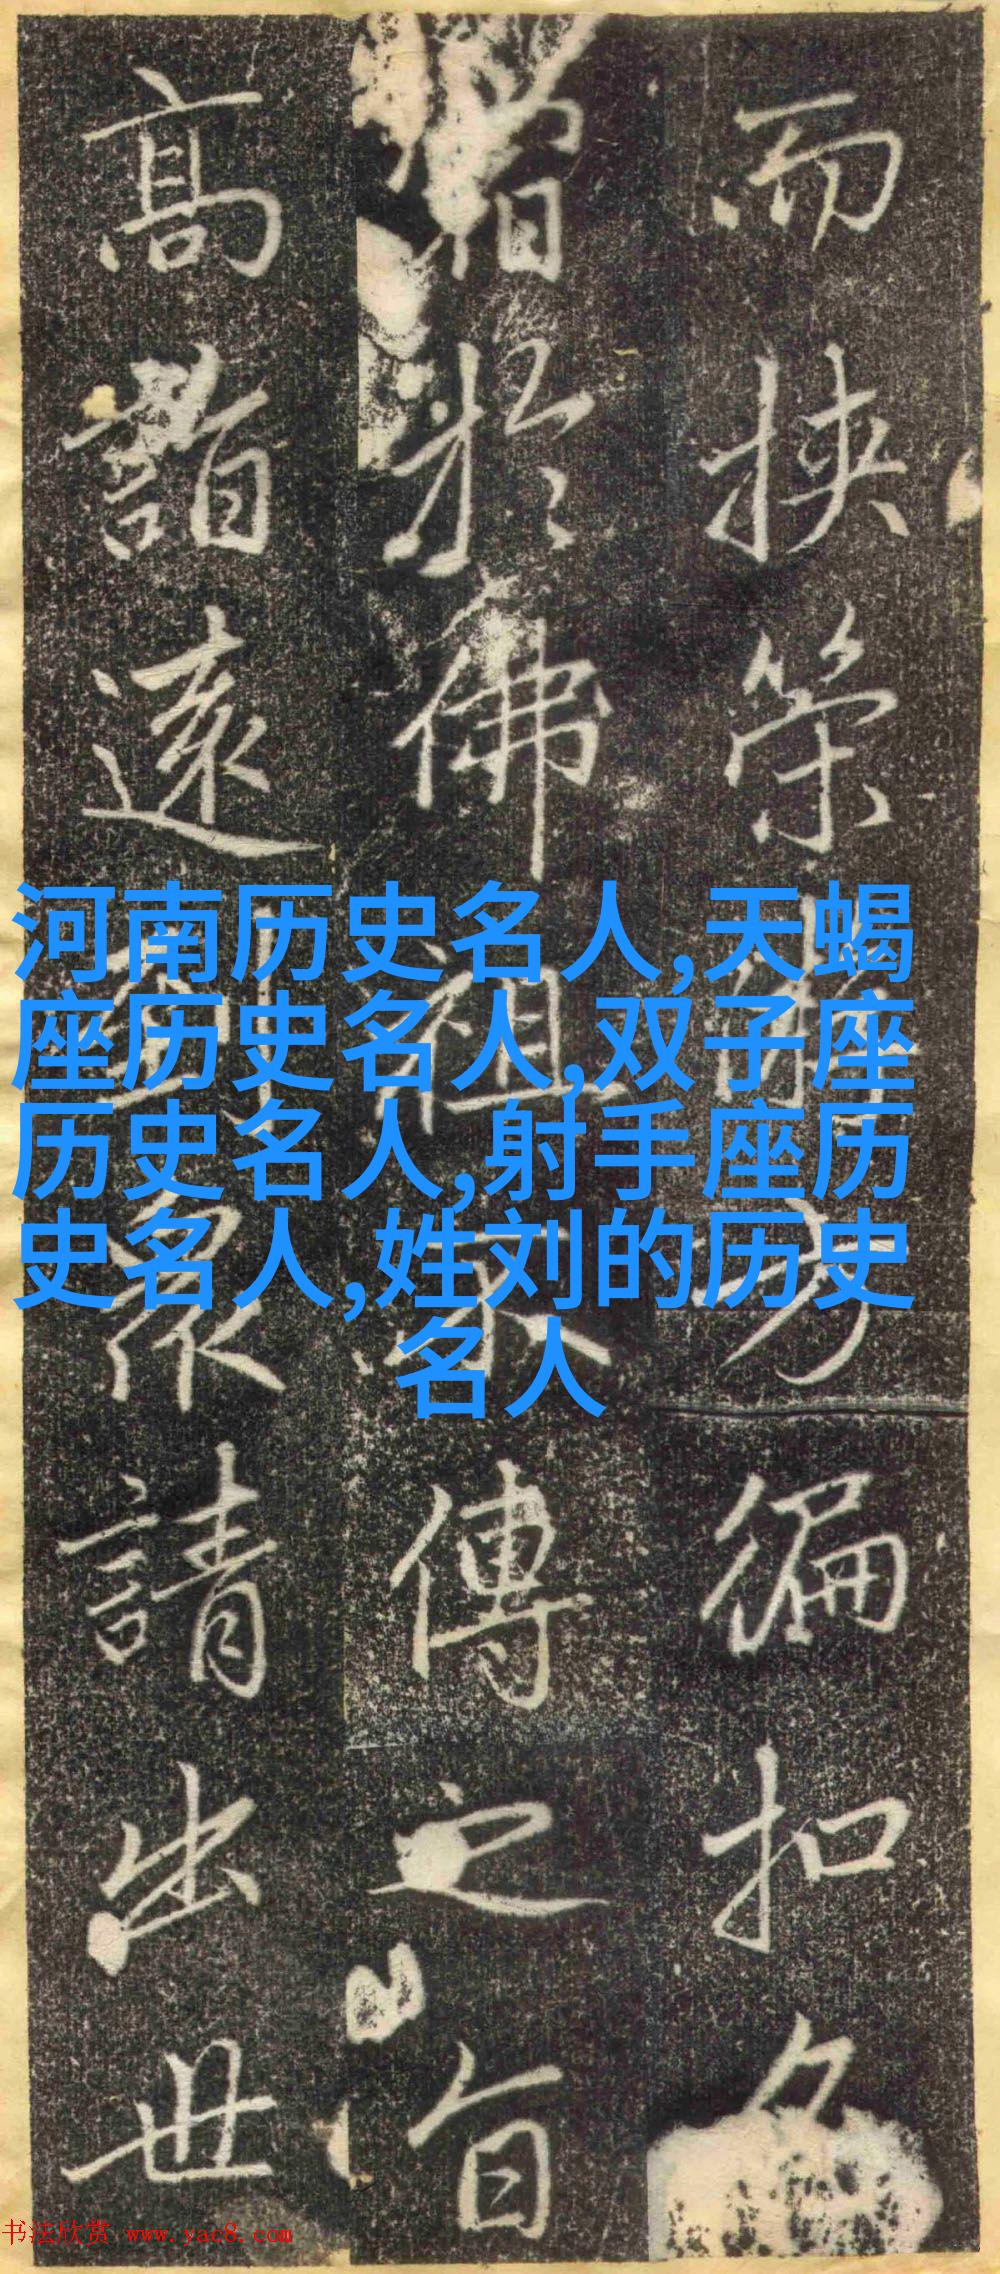 而挾
方徧扣
於佛祖不傳之旨
高
遠
眾請出世
河南历史名人,天蝎
座历史名人,双子座
历史名人,射手座历
史名人,姓刘的历史
名人
书法欣赏 www.yac8.com